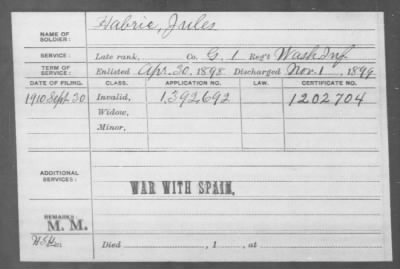 NAME OF SOLDIER: Habric, Jules
SERVICE: Late rank, Co. G. 1 Reg't Wash Inf.
TERM OF SERVICE: Enlisted Apr. 30, 1898. Discharged Nov. 1, 1899
DATE OF FILING. CLASS. APPLICATION NO. LAW. CERTIFICATE NO.
1910 Sept 30 Invalid, 1392692 1202704
Widow,
Minor,
ADDITIONAL SERVICES: WAR WITH SPAIN.
REMARKS:
M. M.
Died , 1 , at